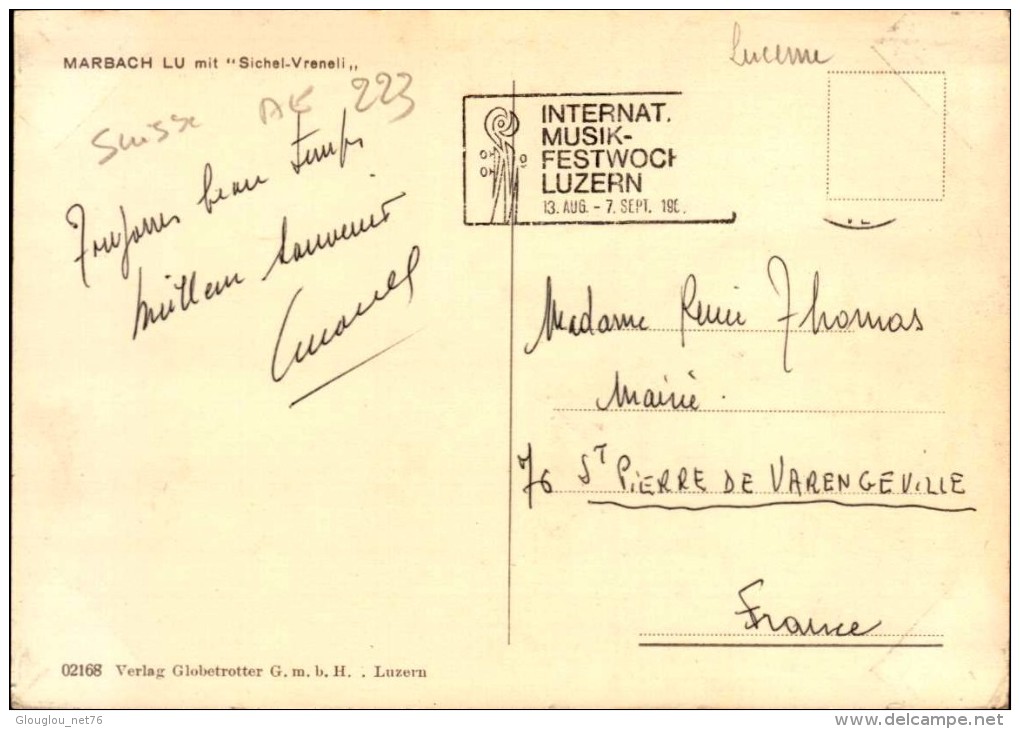 MARBACH LU mit "Sichel-Vreneli„
Suisse AK 223
Toujours beau temps
meilleur souvenir
Lucerne
INTERNAT.
MUSIK-
FESTWOCH
LUZERN
13. AUG. - 7. SEPT. 196
Madame René Thomas
Mairie.
76 ST PIERRE DE VARENGEVILLE
France
02168 Verlag Globetrotter G. m. b. H. . Luzern
Glouglou_net76
www.delcampe.net